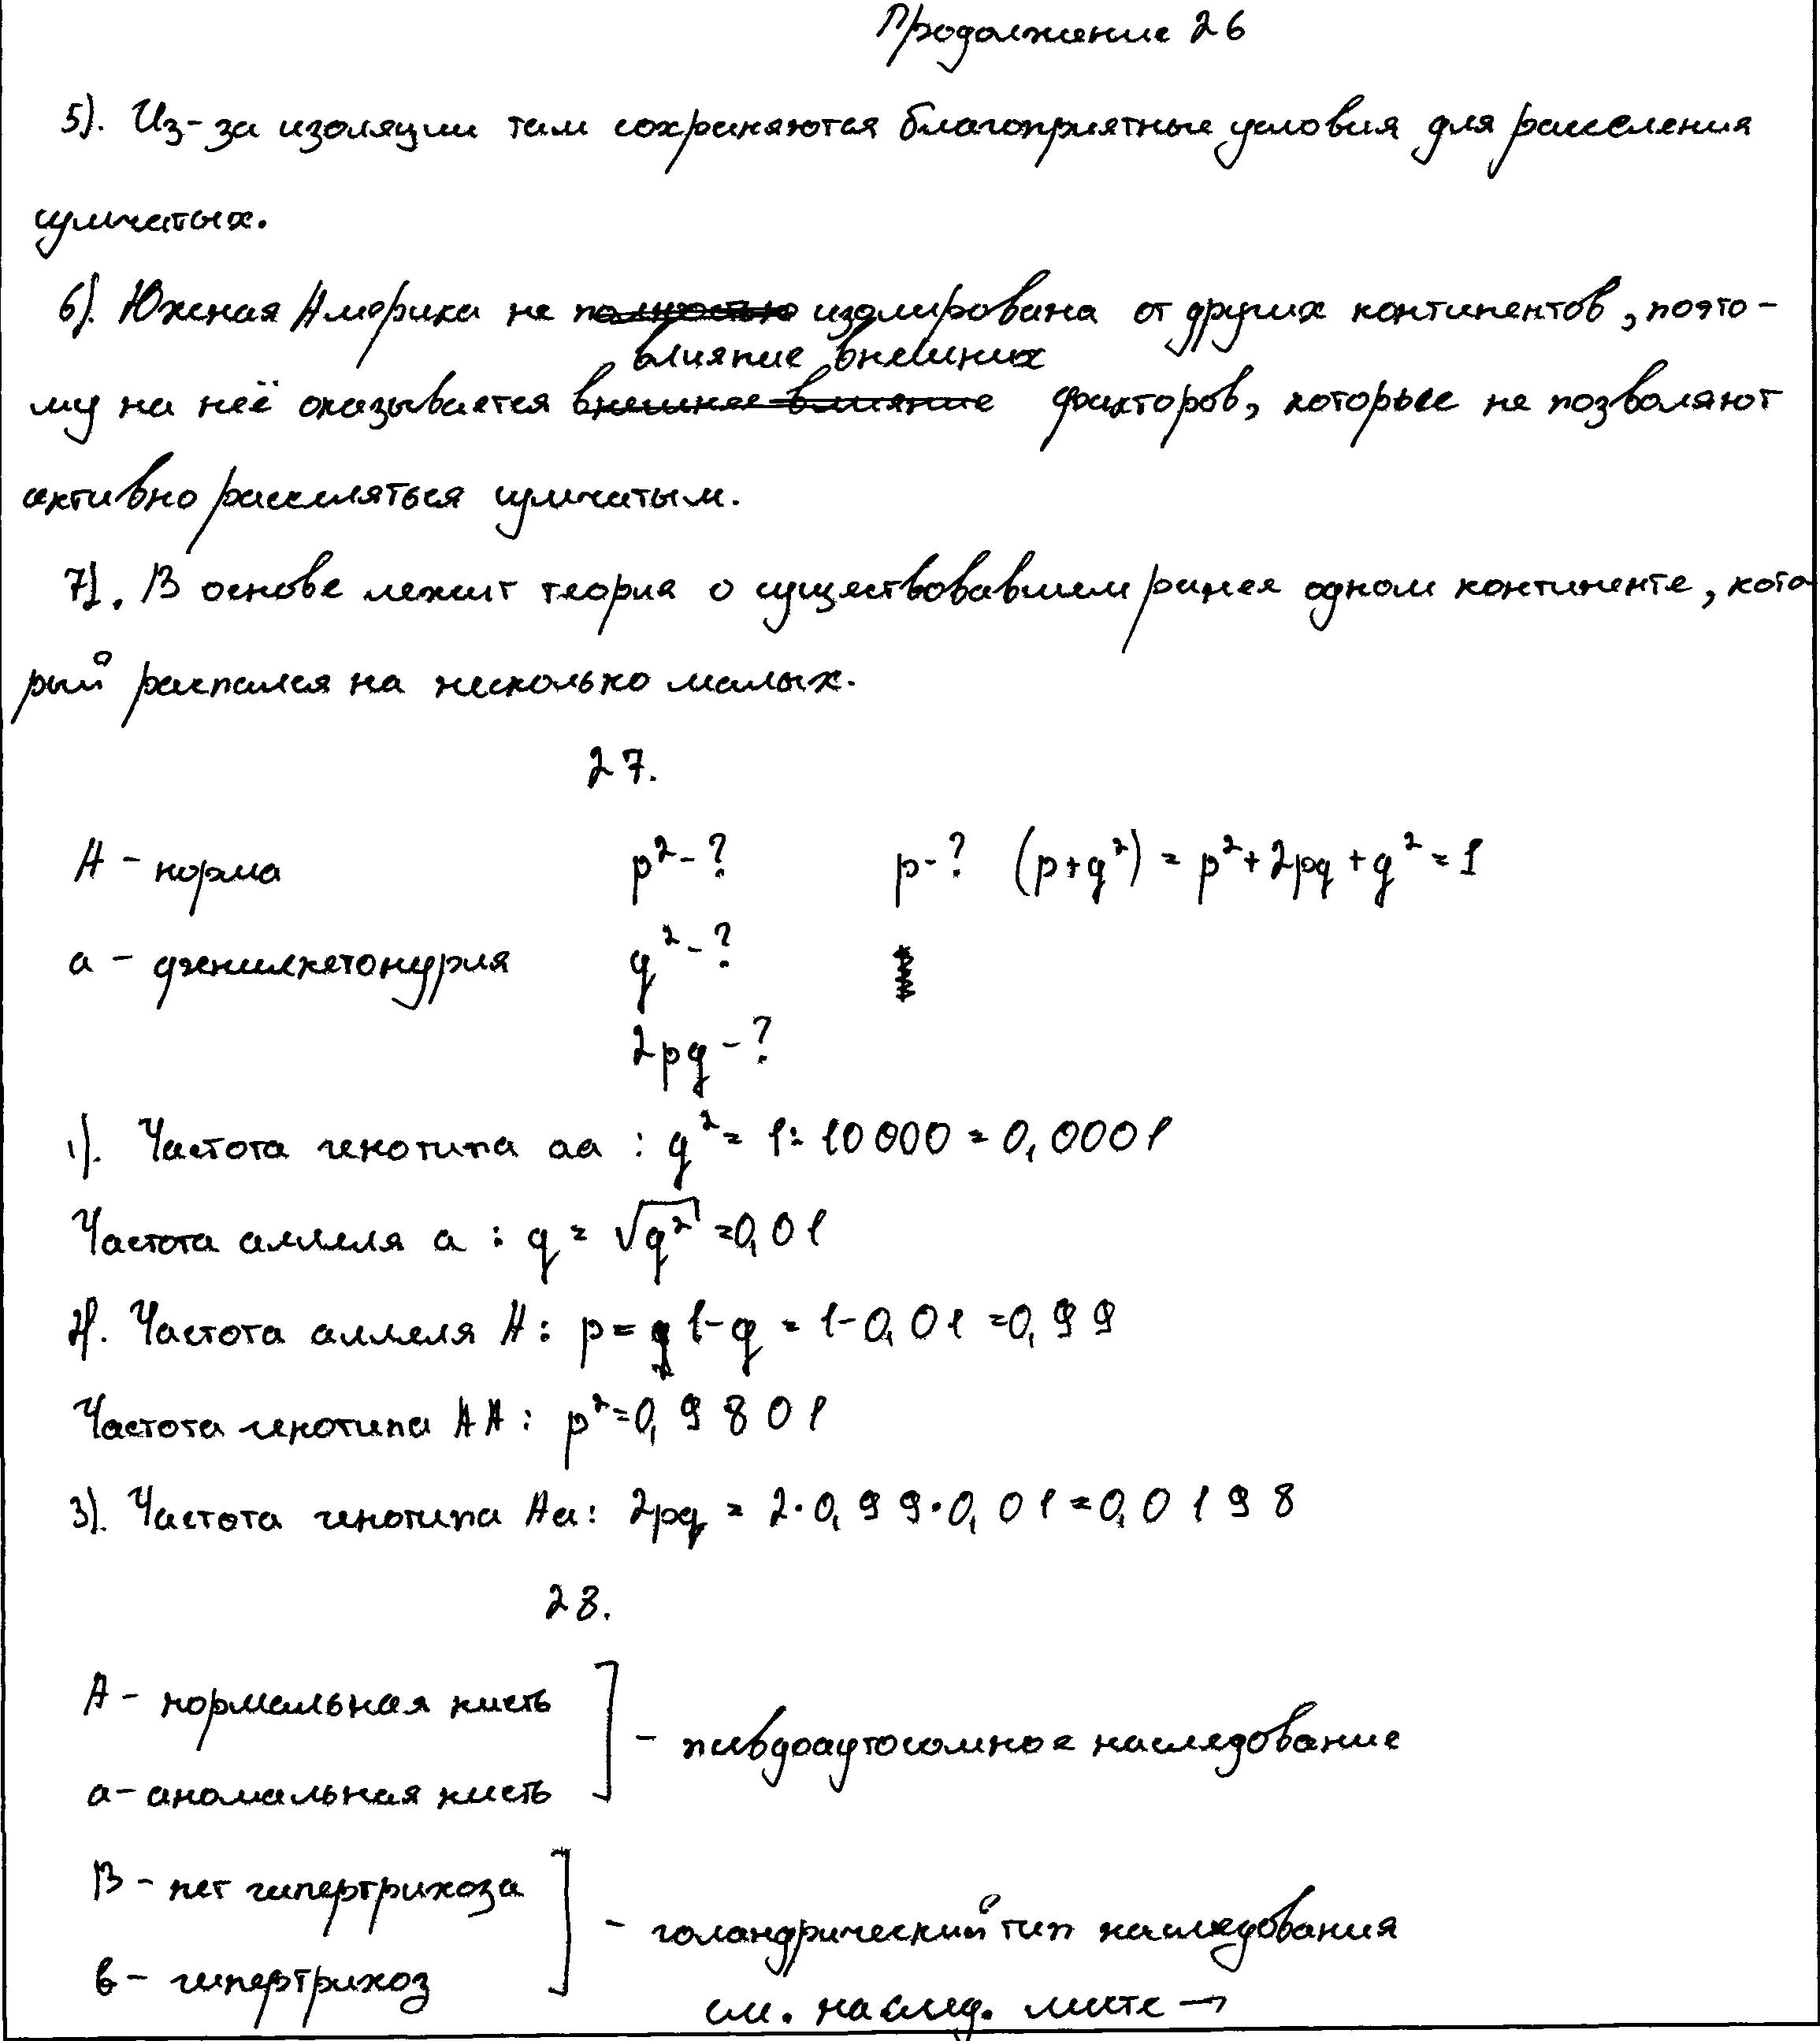 Продолжение 26
5). Из-за изоляции там сохраняются благоприятные условия для расселения
сумчатых.
6). Южная Америка не полностью изолирована от других континентов, поэто-
влияние внешних
му на неё оказывается внешнее влияние факторов, которые не позволяют
активно расселяться сумчатым.
7). В основе лежит теория о существовавшем ранее одном континенте, кото
рый распался на несколько малых.
27.
A - норма p² - ? p - ? (p+q²) = p² + 2pq + q² = 1
a - фенилкетонурия q² - ?
2pq - ?
1). Частота генотипа aa : q² = 1:10000 = 0,0001
Частота аллеля a : q = √q² = 0,01
2). Частота аллеля A: p = 1-q = 1-0,01 = 0,99
Частота генотипа AA: p² = 0,9801
3). Частота генотипа Aa: 2pq = 2·0,99·0,01 = 0,0198
28.
A - нормальная кисть
- псевдоаутосомное наследование
a - аномальная кисть
B - нет гипертрихоза
- голандрический тип наследования
b - гипертрихоз
см. на след. листе →